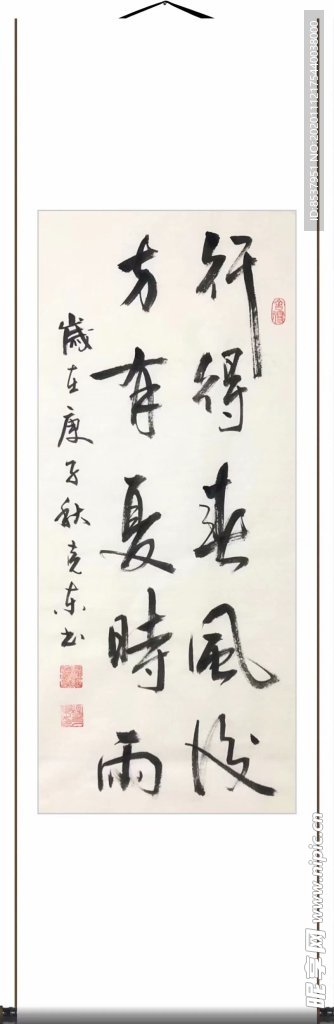 行得春風後
方有夏時雨
歲在庚子秋克东书
ID:8537951 NO:20201112175440038000
昵享网 www.nipic.cn